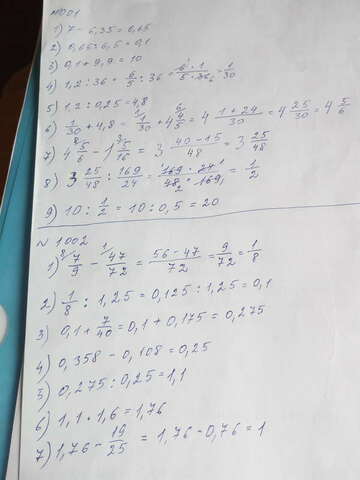 №001
1) 7 - 6,35 = 0,65
2) 0,65 : 6,5 = 0,1
3) 0,1 + 9,9 = 10
4) 1,2 : 36 = 6/5 : 36 = 6 · 1 / 5 · 36 = 1/30
5) 1,2 : 0,25 = 4,8
6) 1/30 + 4,8 = 1/30 + 4 4/5 = 4 1 + 24 / 30 = 4 25/30 = 4 5/6
7) 4 5/6 - 1 5/16 = 3 40 - 15 / 48 = 3 25/48
8) 3 25/48 : 169/24 = 169 · 24 / 48 · 169 = 1/2
9) 10 : 1/2 = 10 : 0,5 = 20
№ 1002
1) 7/9 - 47/72 = 56 - 47 / 72 = 9/72 = 1/8
2) 1/8 : 1,25 = 0,125 : 1,25 = 0,1
3) 0,1 + 7/40 = 0,1 + 0,175 = 0,275
4) 0,358 - 0,108 = 0,25
5) 0,275 : 0,25 = 1,1
6) 1,1 · 1,6 = 1,76
7) 1,76 - 19/25 = 1,76 - 0,76 = 1